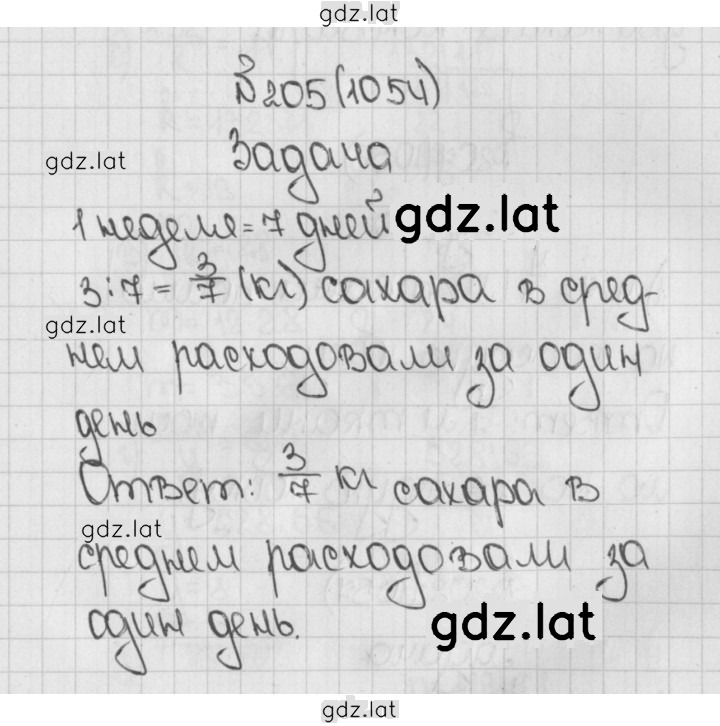 gdz.lat
№205(1054)
gdz.lat
Задача
1 неделя = 7 дней
gdz.lat
3:7 = 3/7 (кг) сахара в сред-
gdz.lat
нем расходовали за один
день
Ответ: 3/7 кг сахара в
gdz.lat
среднем расходовали за
один день.
gdz.lat
gdz.lat